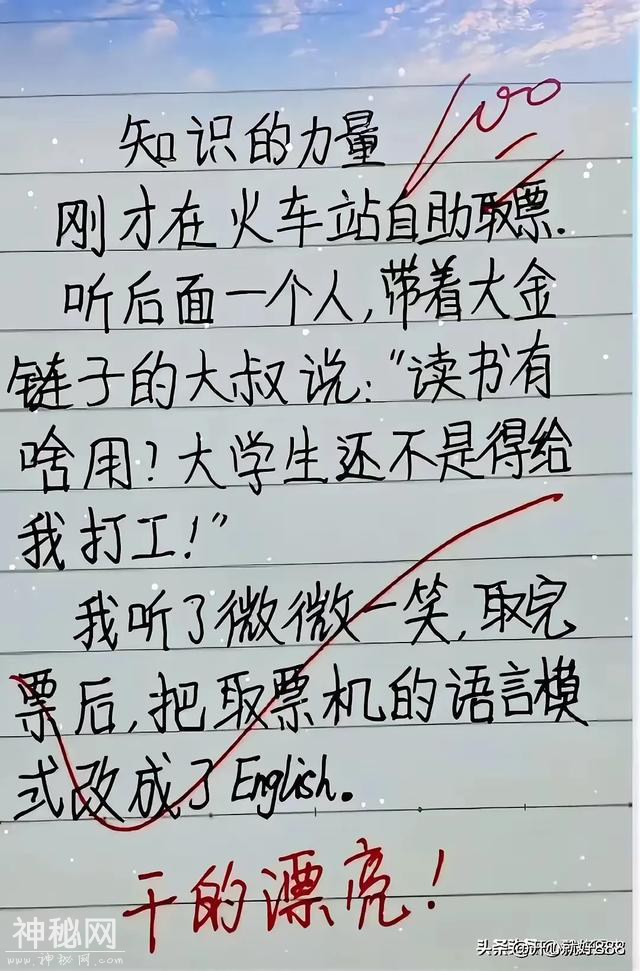 100
知识的力量
刚才在火车站自助取票.
听后面一个人,带着大金
链子的大叔说:"读书有
啥用?大学生还不是得给
我打工!"
我听了微微一笑,取完
票后,把取票机的语言模
式改成了English.
干的漂亮!
神秘网
www.神秘网.com